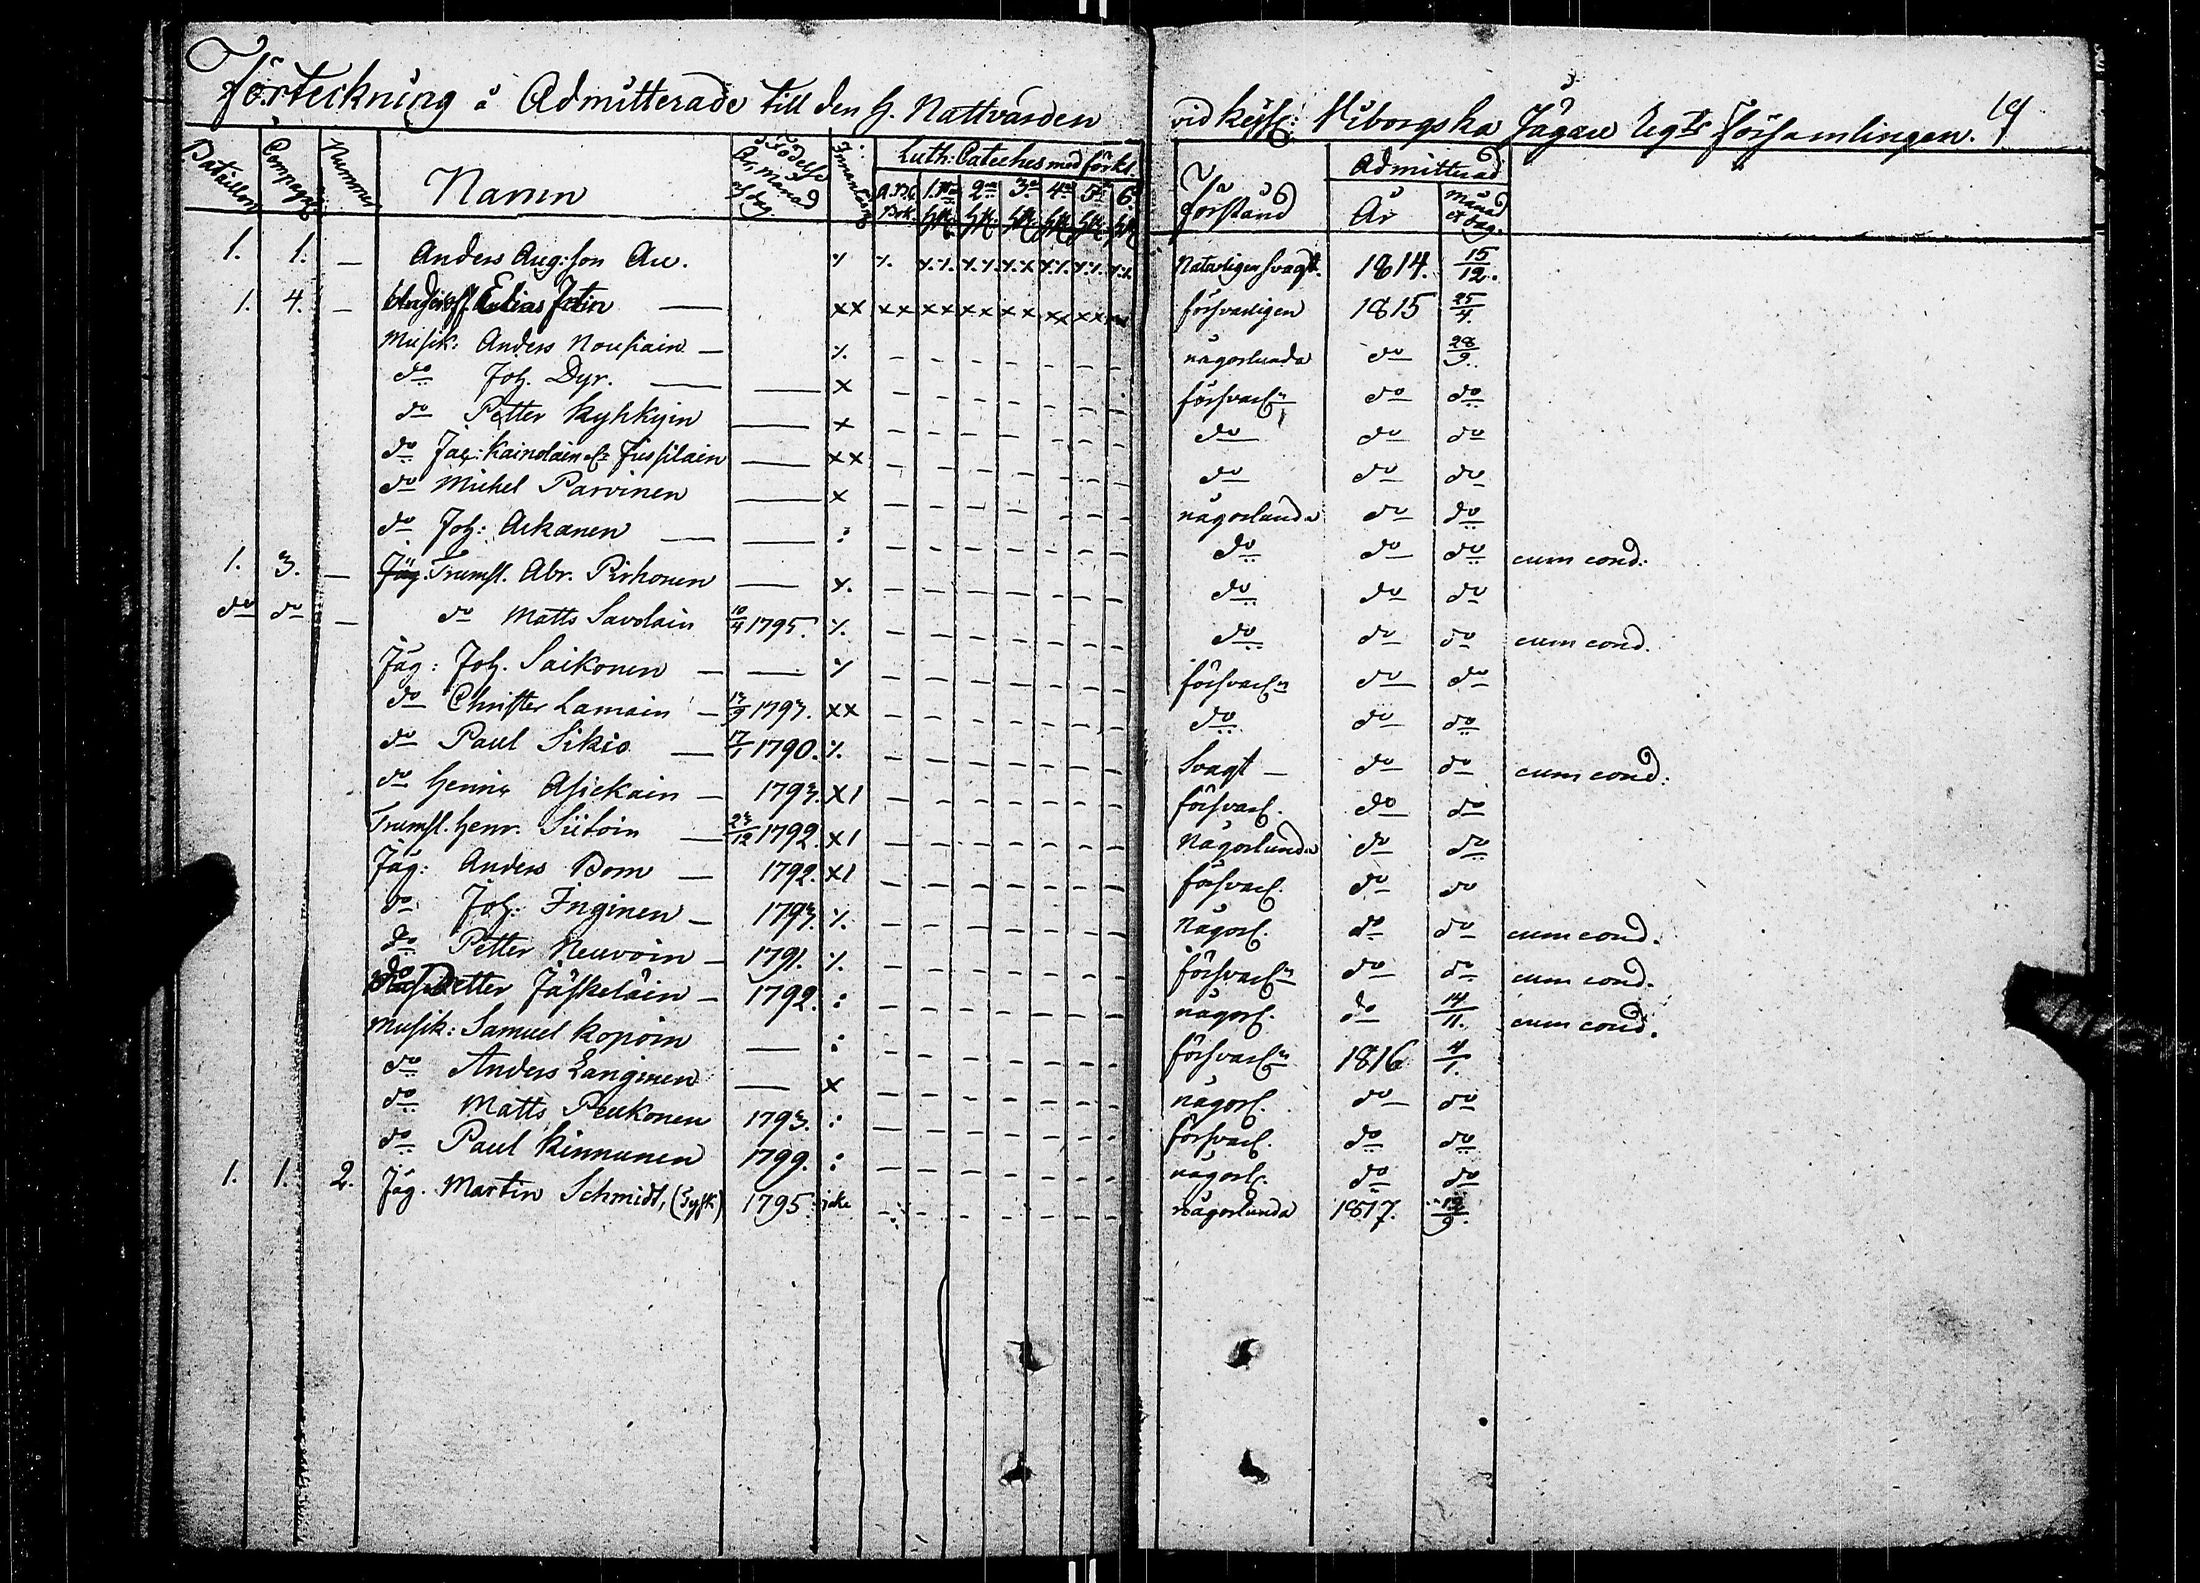 Förteckning å Admitterade till den H. Nattvarden vid Kejserl: Wiborgska Jägare Regts Församlingen. 19
Bataillon Compagnie Nummer Namn Födelse År, Månad och dag. Innanläsning Luth: Cateches med förkl. Förstånd Admitterad
A.B.C. Bok. 1. 2. 3. 4. 5. 6. År Månad et dag.
1. 1. — Anders Aug:son Au. Naturligen svagt. 1814. 15/12.
1. 4. — Elias Jotin — xx xx xx xx xx xx xx försvarligen 1815 25/4.
Musik: Anders Nousiain — någorlunda do 28/9.
do Joh. Dyr. — — x försvarln do do
do Petter Kyhkyin — x do do do
do Jac: Kainolain Jussilain — xx do do do
do Michel Parvinen — x någorlunda do do
do Joh: Arkanen — — : do do do cum cond:
1. 3. — Jäg. Trumsl. Abr. Pirhonen — do do do
do do — do Matts Savolain 10/4 1795. do do do cum cond.
Jäg: Joh. Saikonen — — försvarln do do
do Christer Lamain — 13/9 1793. xx do do do
do Paul Sikio — 17/1 1790. Svagt — do do cum cond:
do Henrir Asickain — 1793. x1 försvarl. do do
Trumsl. Henr. Siitoin — 23/12 1792. x1 Någorlunda do do
Jäg: Anders Bom — 1792. x1 försvarl. do do
do Joh: Inginen — 1793. Någorl. do do cum cond.
do Petter Neuvoin — 1791. försvarln do do cum cond.
do Petter Jäskeläin — 1792. : någorl. do 14/11. cum cond.
Musik: Samuel Kopoin — : försvarln 1816 4/1.
do Anders Langinen — x någorl. do do
do Matts Peukonen 1793. : försvarl. do do
do Paul Kinnunen 1799. : någorl. do do
1. 1. 2. Jäg. Martin Schmidt, (Tysk) 1795. icke någorlunda 1817. 13/9.